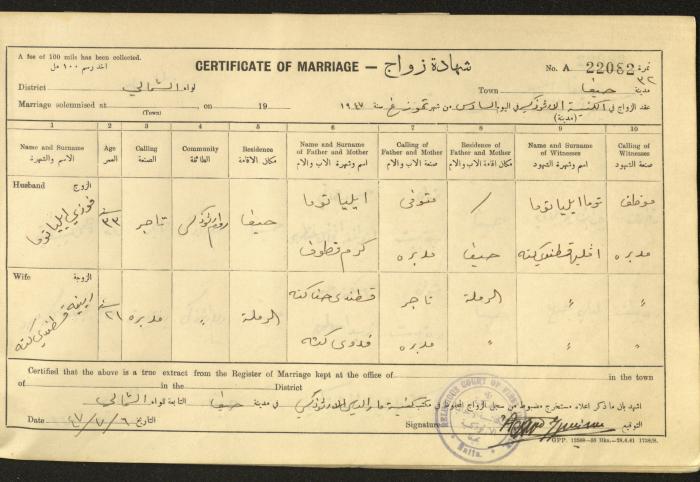 A fee of 100 mils has been collected.
أخذ رسم ١٠٠ مل
CERTIFICATE OF MARRIAGE — شهادة زواج
No. A 22082 نمرة
٣٢
District لواء الشمالي
Town حيفا مدينة
Marriage solemnised at on 19
(Town)
عقد الزواج في الكنيسة الارثوذكسية في اليوم السادس من شهر تموز سنة ١٩٤٧
(مدينة)
1 2 3 4 5 6 7 8 9 10
Name and Surname الاسم والشهرة
Age العمر
Calling الصنعة
Community الطائفة
Residence مكان الاقامة
Name and Surname of Father and Mother اسم وشهرة الاب والام
Calling of Father and Mother صنعة الاب والام
Residence of Father and Mother مكان اقامة الاب والام
Name and Surname of Witnesses اسم وشهرة الشهود
Calling of Witnesses صنعة الشهود
Husband الزوج
فوزي ايليا توما
٣٣ سنة
تاجر
روم ارثوذكس
حيفا
ايليا توما
متوفي
/
توما ايليا توما
موظف
كرم قطوف
مدبره
حيفا
قسطندي كته
مدبره
Wife الزوجة
قسطندي كته
٢١ سنة
مدبره
"
الرملة
قسطندي حنا كته
تاجر
الرملة
"
"
فدوى كته
مدبره
"
"
"
Certified that the above is a true extract from the Register of Marriage kept at the office of in the town
of in the District
اشهد بان ما ذكر اعلاه مستخرج مضبوط من سجل الزواج المحفوظ في مكتب كنيسة مار الياس الارثوذكسي في مدينة حيفا التابعة للواء الشمالي
Date ٤٧/٧/٦ التاريخ
Signature التوقيع
Haifa.
GPP. 12588—50 Bks.—28.6.41 1738/S.